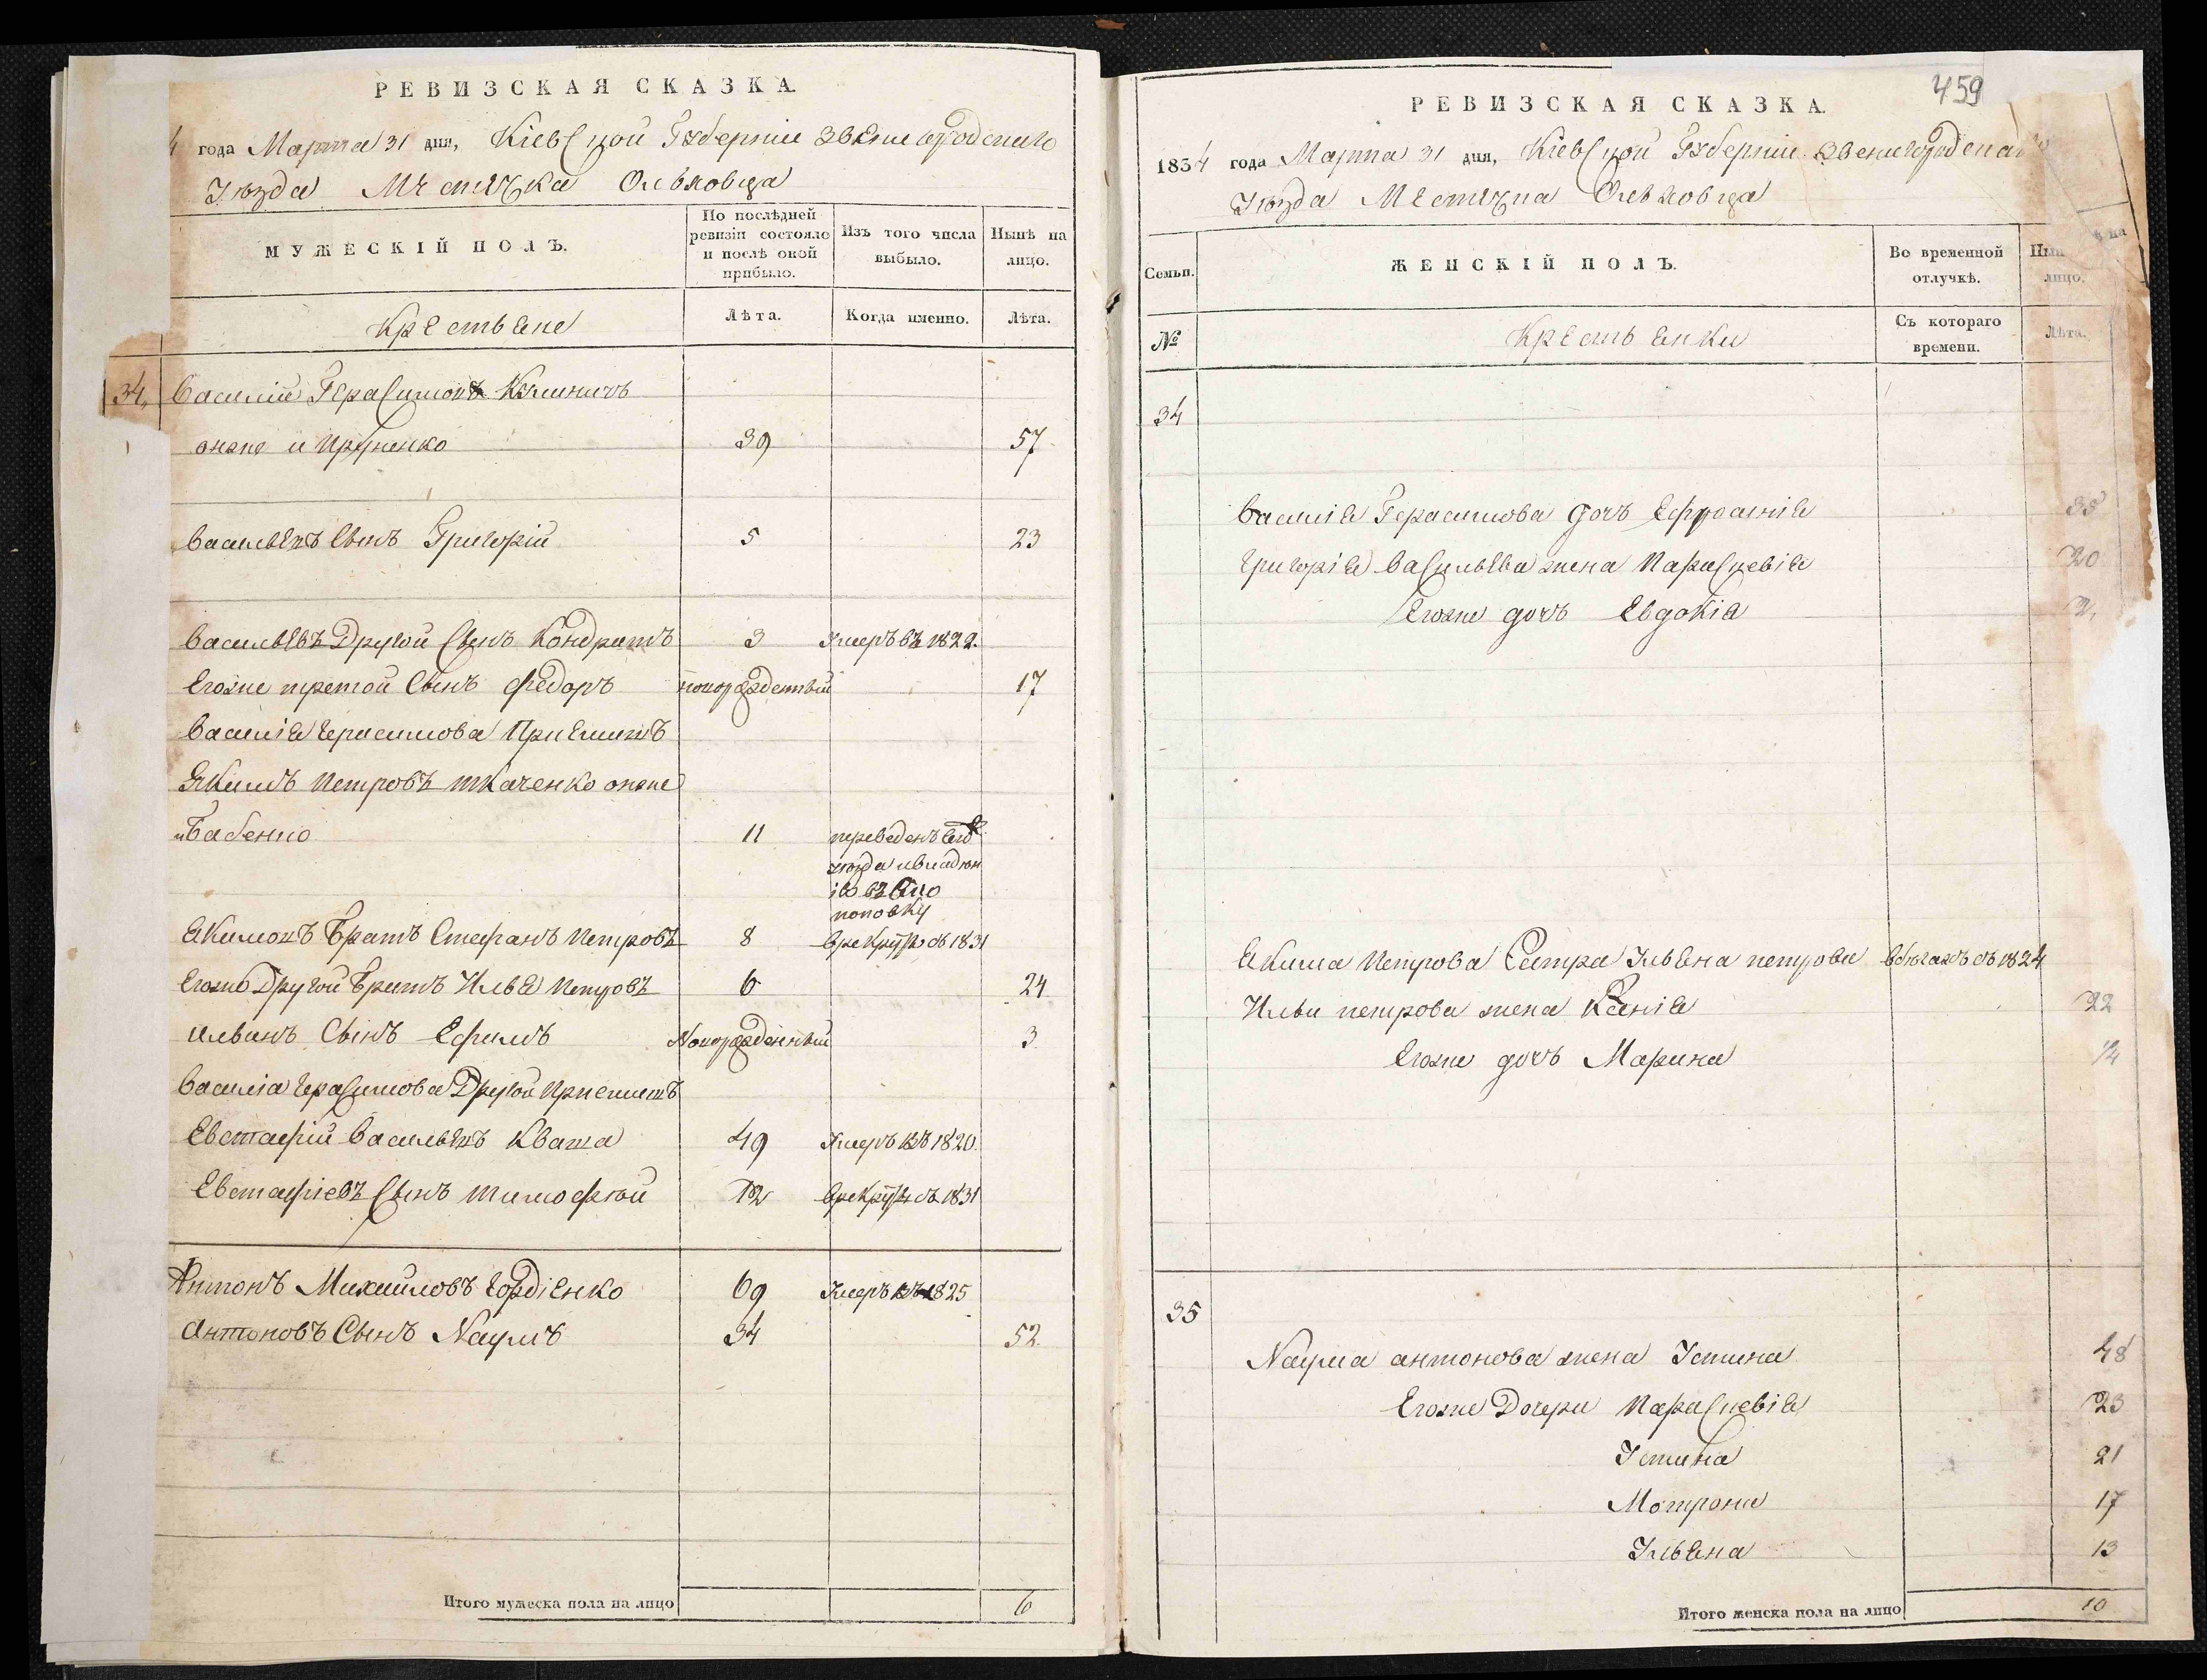 РЕВИЗСКАЯ СКАЗКА.
4 года Марта 31 дня, Кіевской Губерніи Звенигородскаго
Уѣзда Мѣстечка Ольховца
МУЖЕСКІЙ ПОЛЪ.
По послѣдней ревизіи состояло и послѣ оной прибыло.
Изъ того числа выбыло.
Нынѣ на лицо.
Крестьяне
Лѣта.
Когда именно.
Лѣта.
34, Василій Герасимовъ
онже и 39 57
Васильевъ Сынъ Григорій 5 23
Васильевъ Другой Сынъ Кондратъ 3 Умеръ въ 1822.
Егоже третой Сынъ Федоръ новорожденный 17
Василія Герасимова Приемышъ
Якимъ Петровъ Ткаченко онже
и Бабенко 11 переведенъ
уѣзда
въ
поповку
Якимовъ Братъ Стефанъ Петровъ 8 Врекруты съ 1831
Егоже Другой Братъ Илья Петровъ 6 24
Ильинъ Сынъ Ефимъ Новорожденный 3
Василія Герасимова Другой Приемышъ
Евстафій Васильевъ Кваша 49 Умеръ въ 1820.
Евстафіевъ Сынъ Тимофѣй 12 Врекруты съ 1831
Антонъ Михайловъ Гордіенко 69 Умеръ въ 1825
Антоновъ Сынъ Наумъ 34 52.
Итого мужеска пола на лицо 6
459
РЕВИЗСКАЯ СКАЗКА.
1834 года Марта 31 дня, Кіевской Губерніи Звенигородска
Уѣзда Мѣстечка Ольховца
Семьи.
ЖЕНСКІЙ ПОЛЪ.
Во временной отлучкѣ.
лицо.
№
Крестьянки
Съ котораго времени.
Лѣта.
34
Василія Герасимова дочъ Ефросинія 35
Григорія Васильева жена Параскевія 20
Егоже дочъ Евдокія 2,
Якима Петрова Сестра Ульяна петрова вбѣгахъ съ 1824
Ильи петрова жена Ксенія 22
Егоже дочъ Марина 1/4
35
Наума антонова жена Устина 48
Егоже Дочери Параскевія 23
Устина 21
Мотрона 17
Ульяна 13
Итого женска пола на лицо 10